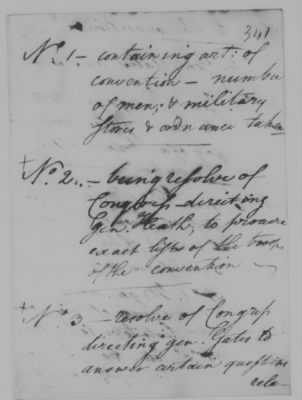 341
No. 1 - containing art: of
convention - number
of men; & military
stores & ordnance taken
+ No. 2. - being resolve of
Congress directing
Gen. Heath, to procure
exact lists of the troops
of the convention
+ No 3 - resolve of Congress
directing gen. Gates to
answer certain questions
rela-